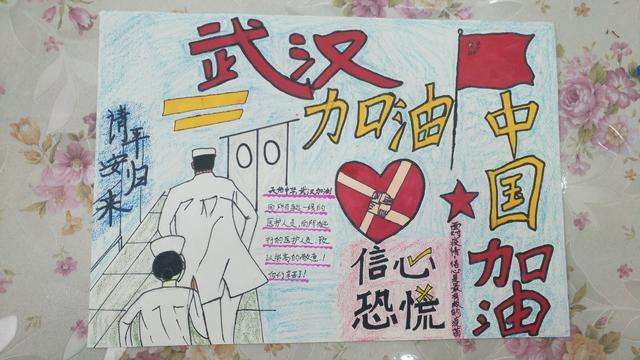 武汉
加油
中国
加油
请平安归来
天佑中华，武汉加油
医护人员，向所有
行的医护人员，致
以崇高的敬意！
你们辛苦了！
信心
恐慌